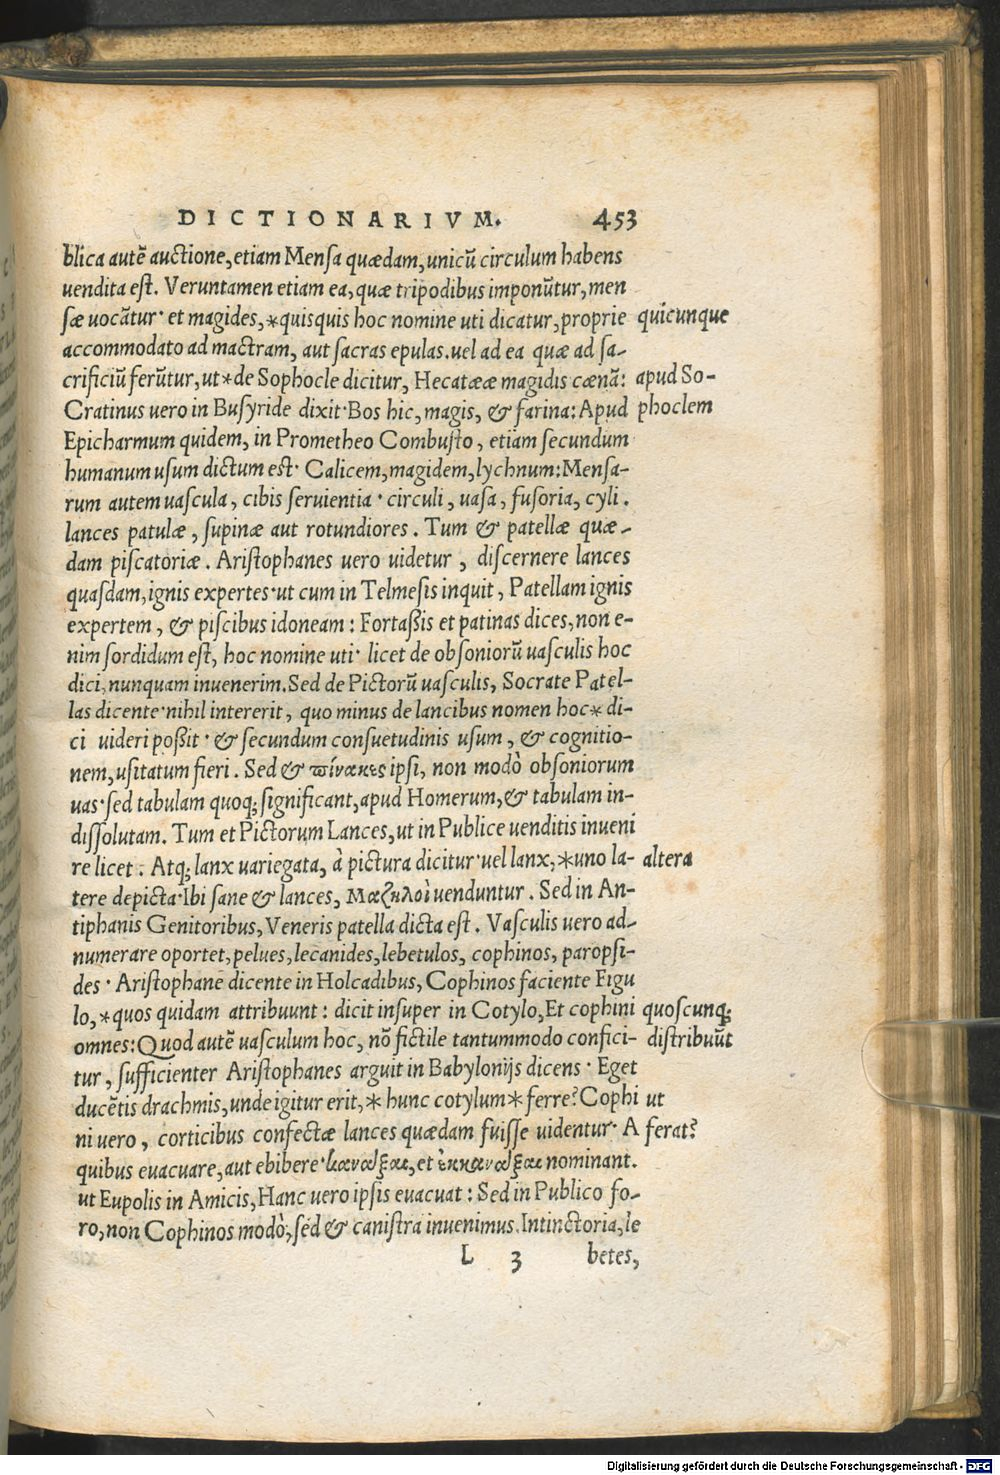 DICTIONARIVM. 453
blica autē auctione, etiam Mensa quædam, unicū circulum habens
uendita est. Veruntamen etiam ea, quæ tripodibus imponūtur, men
sæ uocātur· et magides, *quisquis hoc nomine uti dicatur, proprie quicunque
accommodato ad mactram, aut sacras epulas. uel ad ea quæ ad sa-
crificiū ferūtur, ut *de Sophocle dicitur, Hecatææ magidis cænā: apud So-
Cratinus uero in Busyride dixit· Bos hic, magis, & farina: Apud phoclem
Epicharmum quidem, in Prometheo Combusto, etiam secundum
humanum usum dictum est· Calicem, magidem, lychnum: Mensa-
rum autem uascula, cibis seruientia· circuli, uasa, fusoria, cyli.
lances patulæ, supinæ aut rotundiores. Tum & patellæ quæ-
dam piscatoriæ. Aristophanes uero uidetur, discernere lances
quasdam, ignis expertes· ut cum in Telmesis inquit, Patellam ignis
expertem, & piscibus idoneam: Fortaßis et patinas dices, non e-
nim sordidum est, hoc nomine uti· licet de obsoniorū uasculis hoc
dici, nunquam inuenerim. Sed de Pictorū uasculis, Socrate Patel-
las dicente· nihil intererit, quo minus de lancibus nomen hoc * di-
ci uideri poßit· & secundum consuetudinis usum, & cognitio-
nem, usitatum fieri. Sed & πίνακες ipsi, non modò obsoniorum
uas· sed tabulam quoq; significant, apud Homerum, & tabulam in-
dissolutam. Tum et Pictorum Lances, ut in Publice uenditis inueni
re licet. Atq; lanx uariegata, à pictura dicitur· uel lanx, *uno la- altera
tere depicta· Ibi sane & lances, Μαζηλοὶ uenduntur. Sed in An-
tiphanis Genitoribus, Veneris patella dicta est. Vasculis uero ad-
numerare oportet, pelues, lecanides, lebetulos, cophinos, paropsi-
des· Aristophane dicente in Holcadibus, Cophinos faciente Figu
lo, *quos quidam attribuunt: dicit insuper in Cotylo, Et cophini quoscunq;
omnes: Quod autē uasculum hoc, nō fictile tantummodo confici- distribuūt
tur, sufficienter Aristophanes arguit in Babylonijs dicens· Eget
ducētis drachmis, unde igitur erit, * hunc cotylum * ferre? Cophi ut
ni uero, corticibus confectæ lances quædam fuisse uidentur· A ferat?
quibus euacuare, aut ebibere· καναξαι, et ἐκκαναξαι nominant.
ut Eupolis in Amicis, Hanc uero ipsis euacuat: Sed in Publico fo-
ro, non Cophinos modò, sed & canistra inuenimus. Intinctoria, le
L 3 betes,
Digitalisierung gefördert durch die Deutsche Forschungsgemeinschaft - DFG